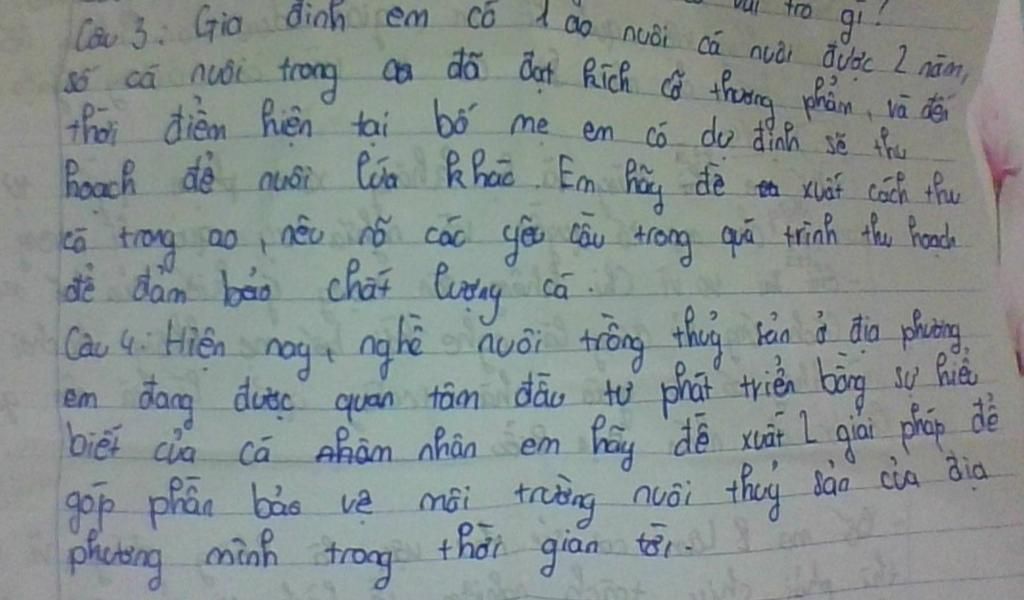 vai trò gì?
Câu 3: Gia đình em có 1 ao nuôi cá nuôi được 2 năm,
số cá nuôi trong ao đã đạt kích cỡ thương phẩm, và đến
thời điểm hiện tại bố mẹ em có dự định sẽ thu
hoạch để nuôi lứa khác. Em hãy đề xuất cách thu
cá trong ao, nêu rõ các yêu cầu trong quá trình thu hoạch
để đảm bảo chất lượng cá.
Câu 4: Hiện nay, nghề nuôi trồng thuỷ sản ở địa phương
em đang được quan tâm đầu tư phát triển bằng sự hiểu
biết của cá nhân em hãy đề xuất 2 giải pháp để
góp phần bảo vệ môi trường nuôi thuỷ sản của địa
phương mình trong thời gian tới.